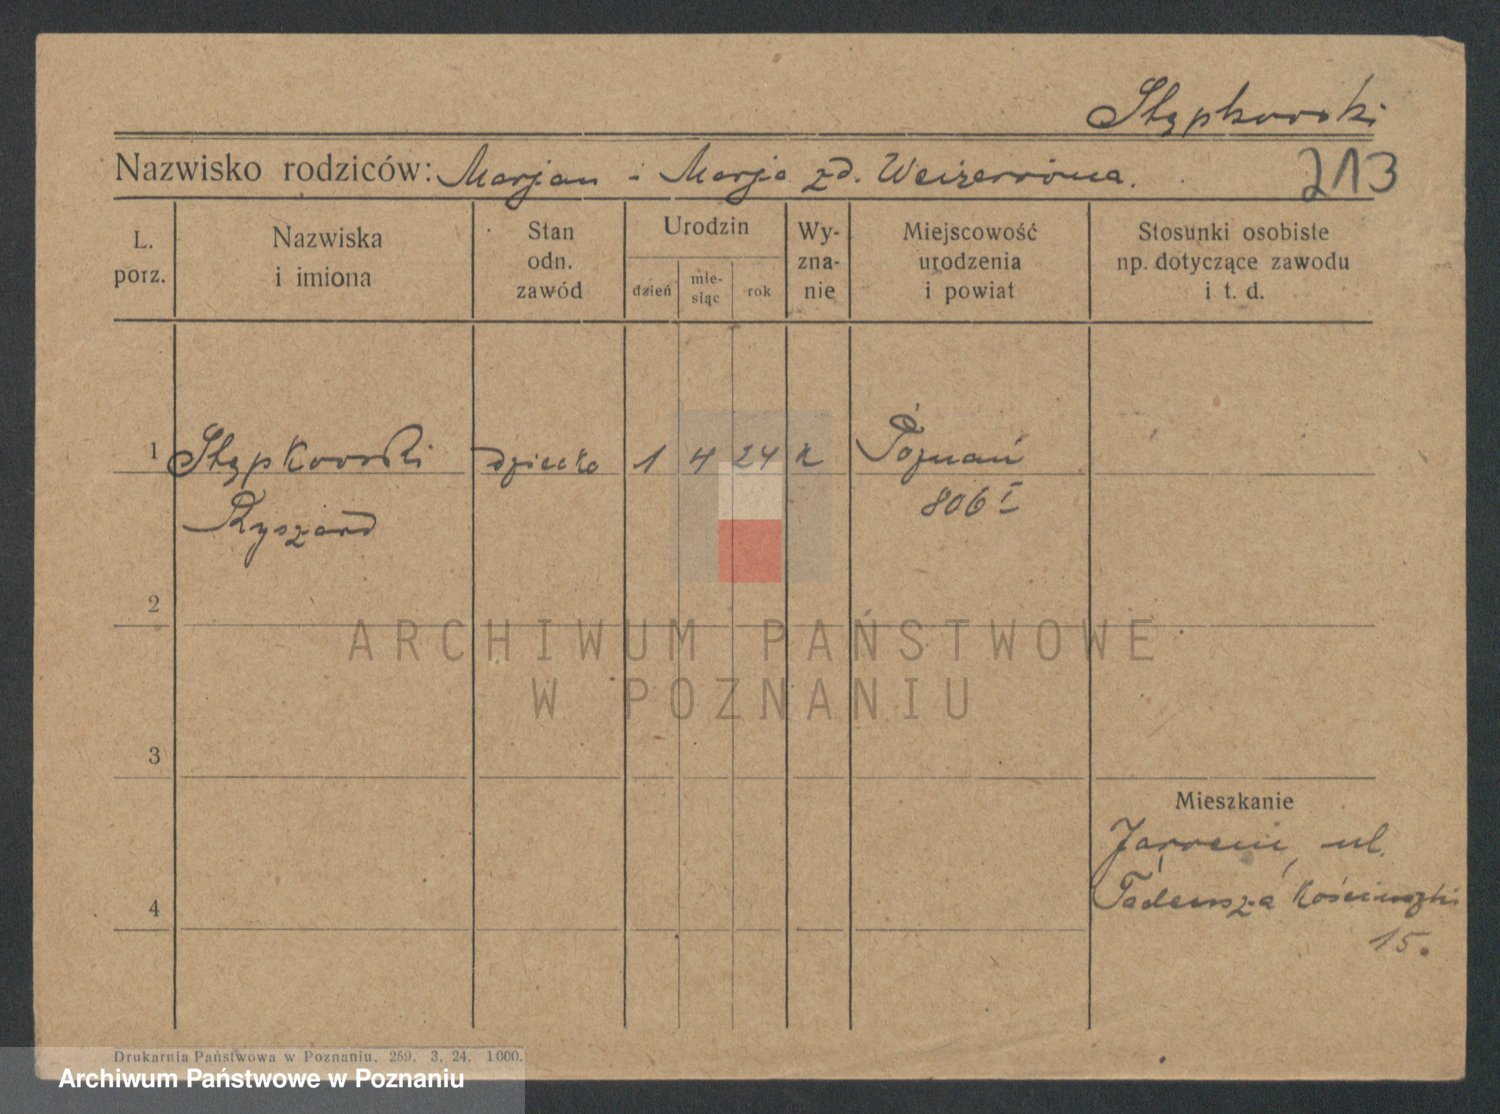 Stępkowski
Nazwisko rodziców: Marjan i Marja zd. Weizerówna.
213
L. porz.
Nazwiska i imiona
Stan odn. zawód
Urodzin
dzień
mie-siąc
rok
Wy-zna-nie
Miejscowość urodzenia i powiat
Stosunki osobiste np. dotyczące zawodu i t. d.
1 Stępkowski dziecko 1 4 24 k Poznań
Ryszard 806 I
2
3
4
Mieszkanie
ul.
Tadeusza Kościuszki
15.
ARCHIWUM PAŃSTWOWE
W POZNANIU
Drukarnia Państwowa w Poznaniu. 259. 3. 24. 1000.
Archiwum Państwowe w Poznaniu